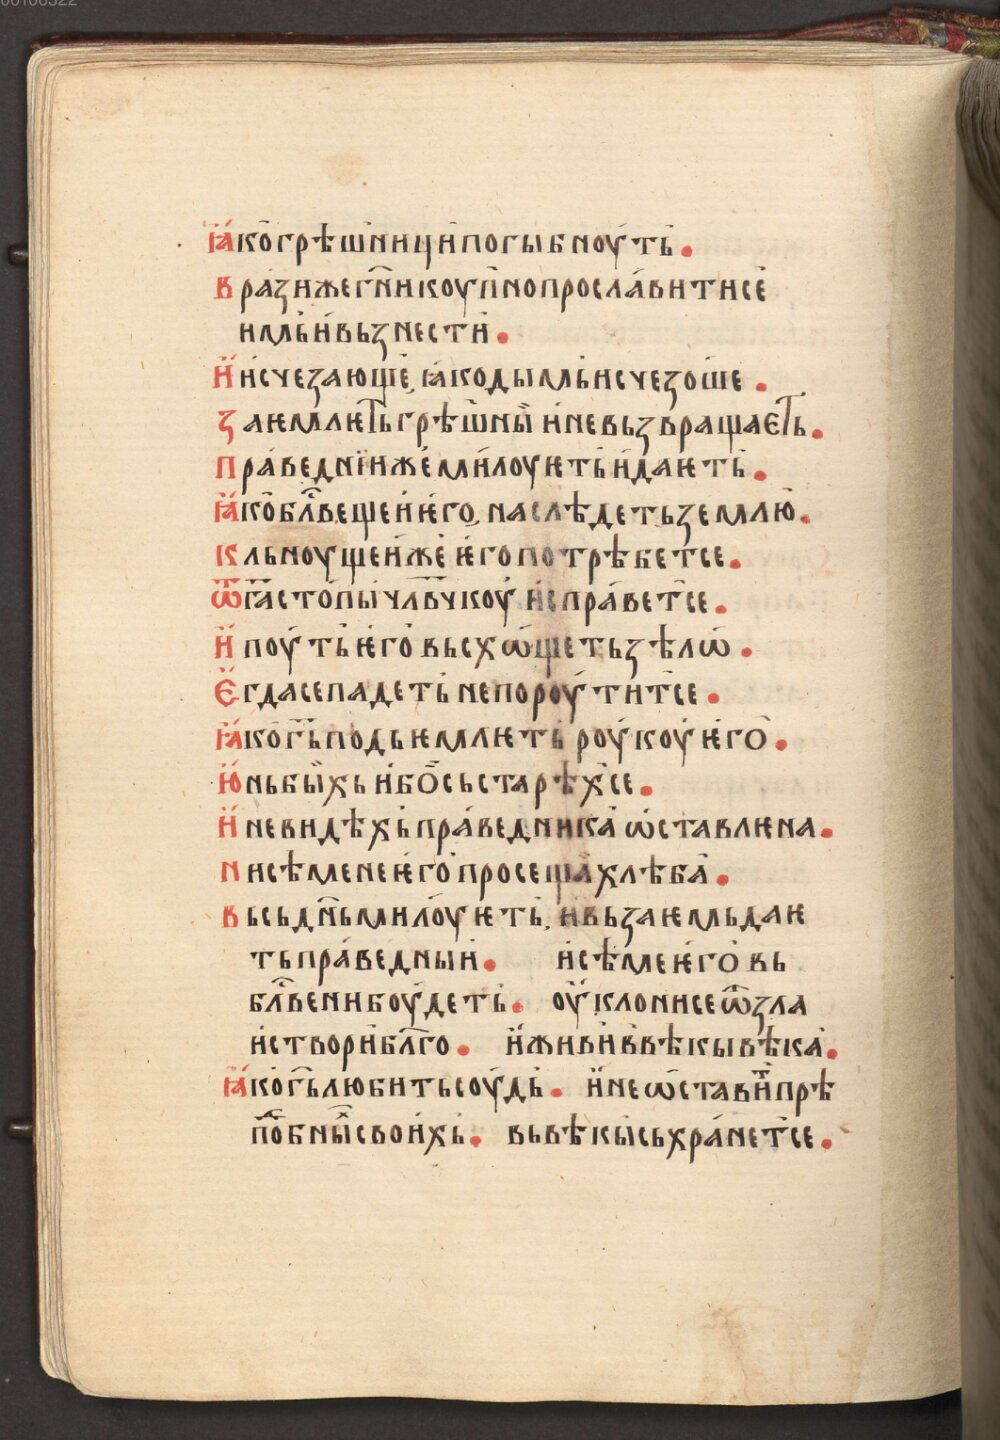 00106322
ꙗко грѣшници погыбноуть.
врази же гни коупно прославити се
имь и вьзнести.
И исчезающе, ꙗко дымь исчезоше.
Заѥмлѥть грѣшны и не вьзвращаеть.
Праведни же милоуѥть и даѥть.
ꙗко блвещеи ѥго, наслѣдеть землю.
Кльноущеи же ѥго потрѣбет се.
Ѿ га стопы члвчкоу исправет се.
И поуть ѥго вьсхѡщеть зѣлѡ.
Егда се падеть не пороутит се.
ꙗко гь подьѥмлѥть роукоу ѥго.
Юнь быхь ибо сьстарѣх се.
И не видѣхь праведника ѡставлѥна.
Ни сѣмене ѥго просеща хлѣба.
Вьсь днь милоуѥть, и вьзаѥмь даѥ
ть праведныи. и сѣме ѥго вь
блвени боудеть. оуклони се ѿ зла
и створи блго. и живи в вѣкы вѣка.
ꙗко гь любить соудь. и не ѡставит прѣ
побны своихь. вь вѣкы сьхранет се.